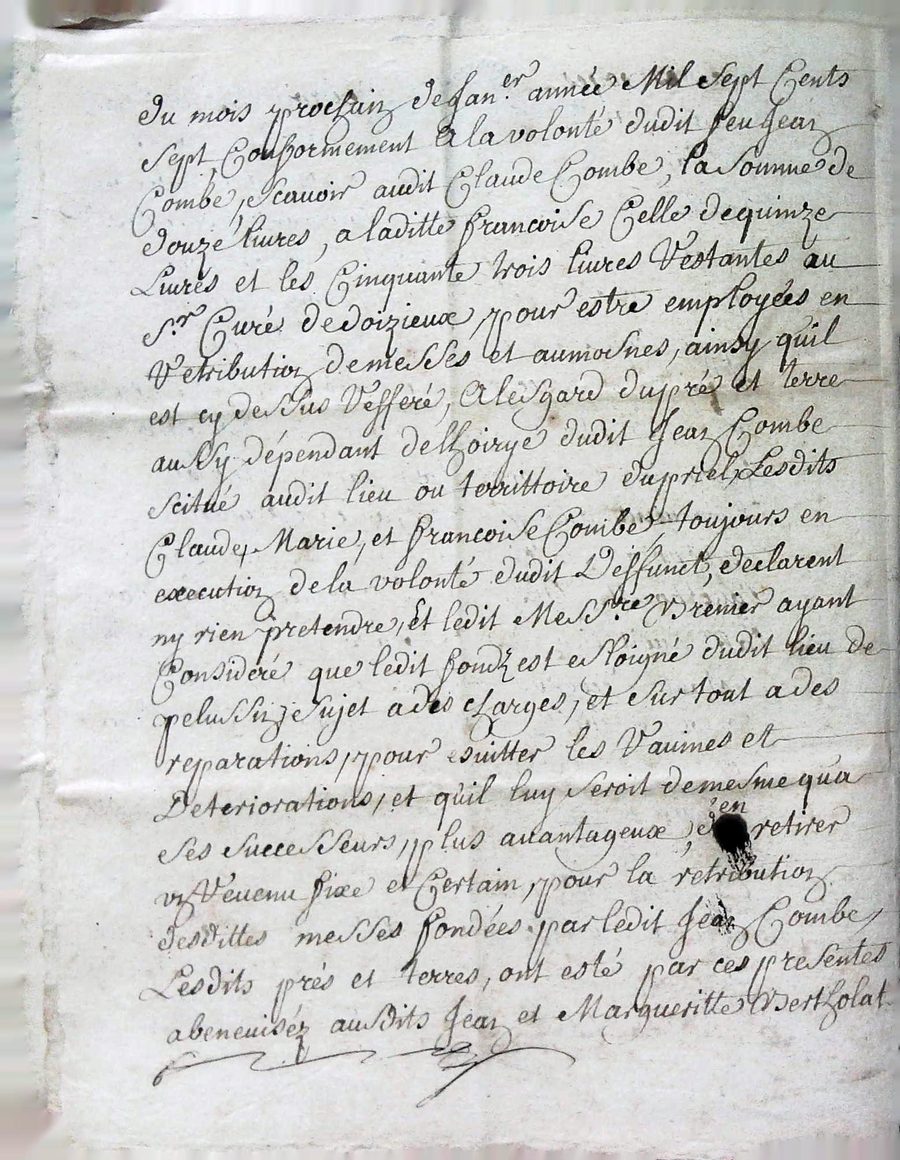 du mois prochain de Jan.er année Mil Sept Cents
sept, Conformement a la volonté dudit feu Jean
Combe, scauoir audit Claude Combe, la somme de
douze liures, a laditte francoise Celle de quinze
Liures et les Cinquante trois liures restantes au
S.r Curé de doizieux pour estre employées en
retribution de messes et aumosnes, ainsy quil
est cy dessus refferé, A lesgard du pré et terre
aussy dépendant de lhoirye dudit Jean Combe
scitué audit lieu ou territtoire du priel, Lesdits
Claude, Marie, et francoise Combe, toujours en
execution de la volonté dudit Deffunct, declarent
ny rien pretendre, Et ledit Mess.re Bremer ayant
Consideré que ledit fondz est esloigné dudit lieu de
pelussin, sujet a des charges, et sur tout a des
reparations, pour esuitter les rauines et
Deteriorations, et quil luy seroit de mesme qua
ses successeurs, plus auantageux, d'en retirer
un reuenu fixe et Certain, pour la retribution
desdittes messes fondées par ledit Jean Combe,
Lesdits prés et terres, ont esté par ces presentes
abeneuisez ausdits Jean et Margueritte Bertholat